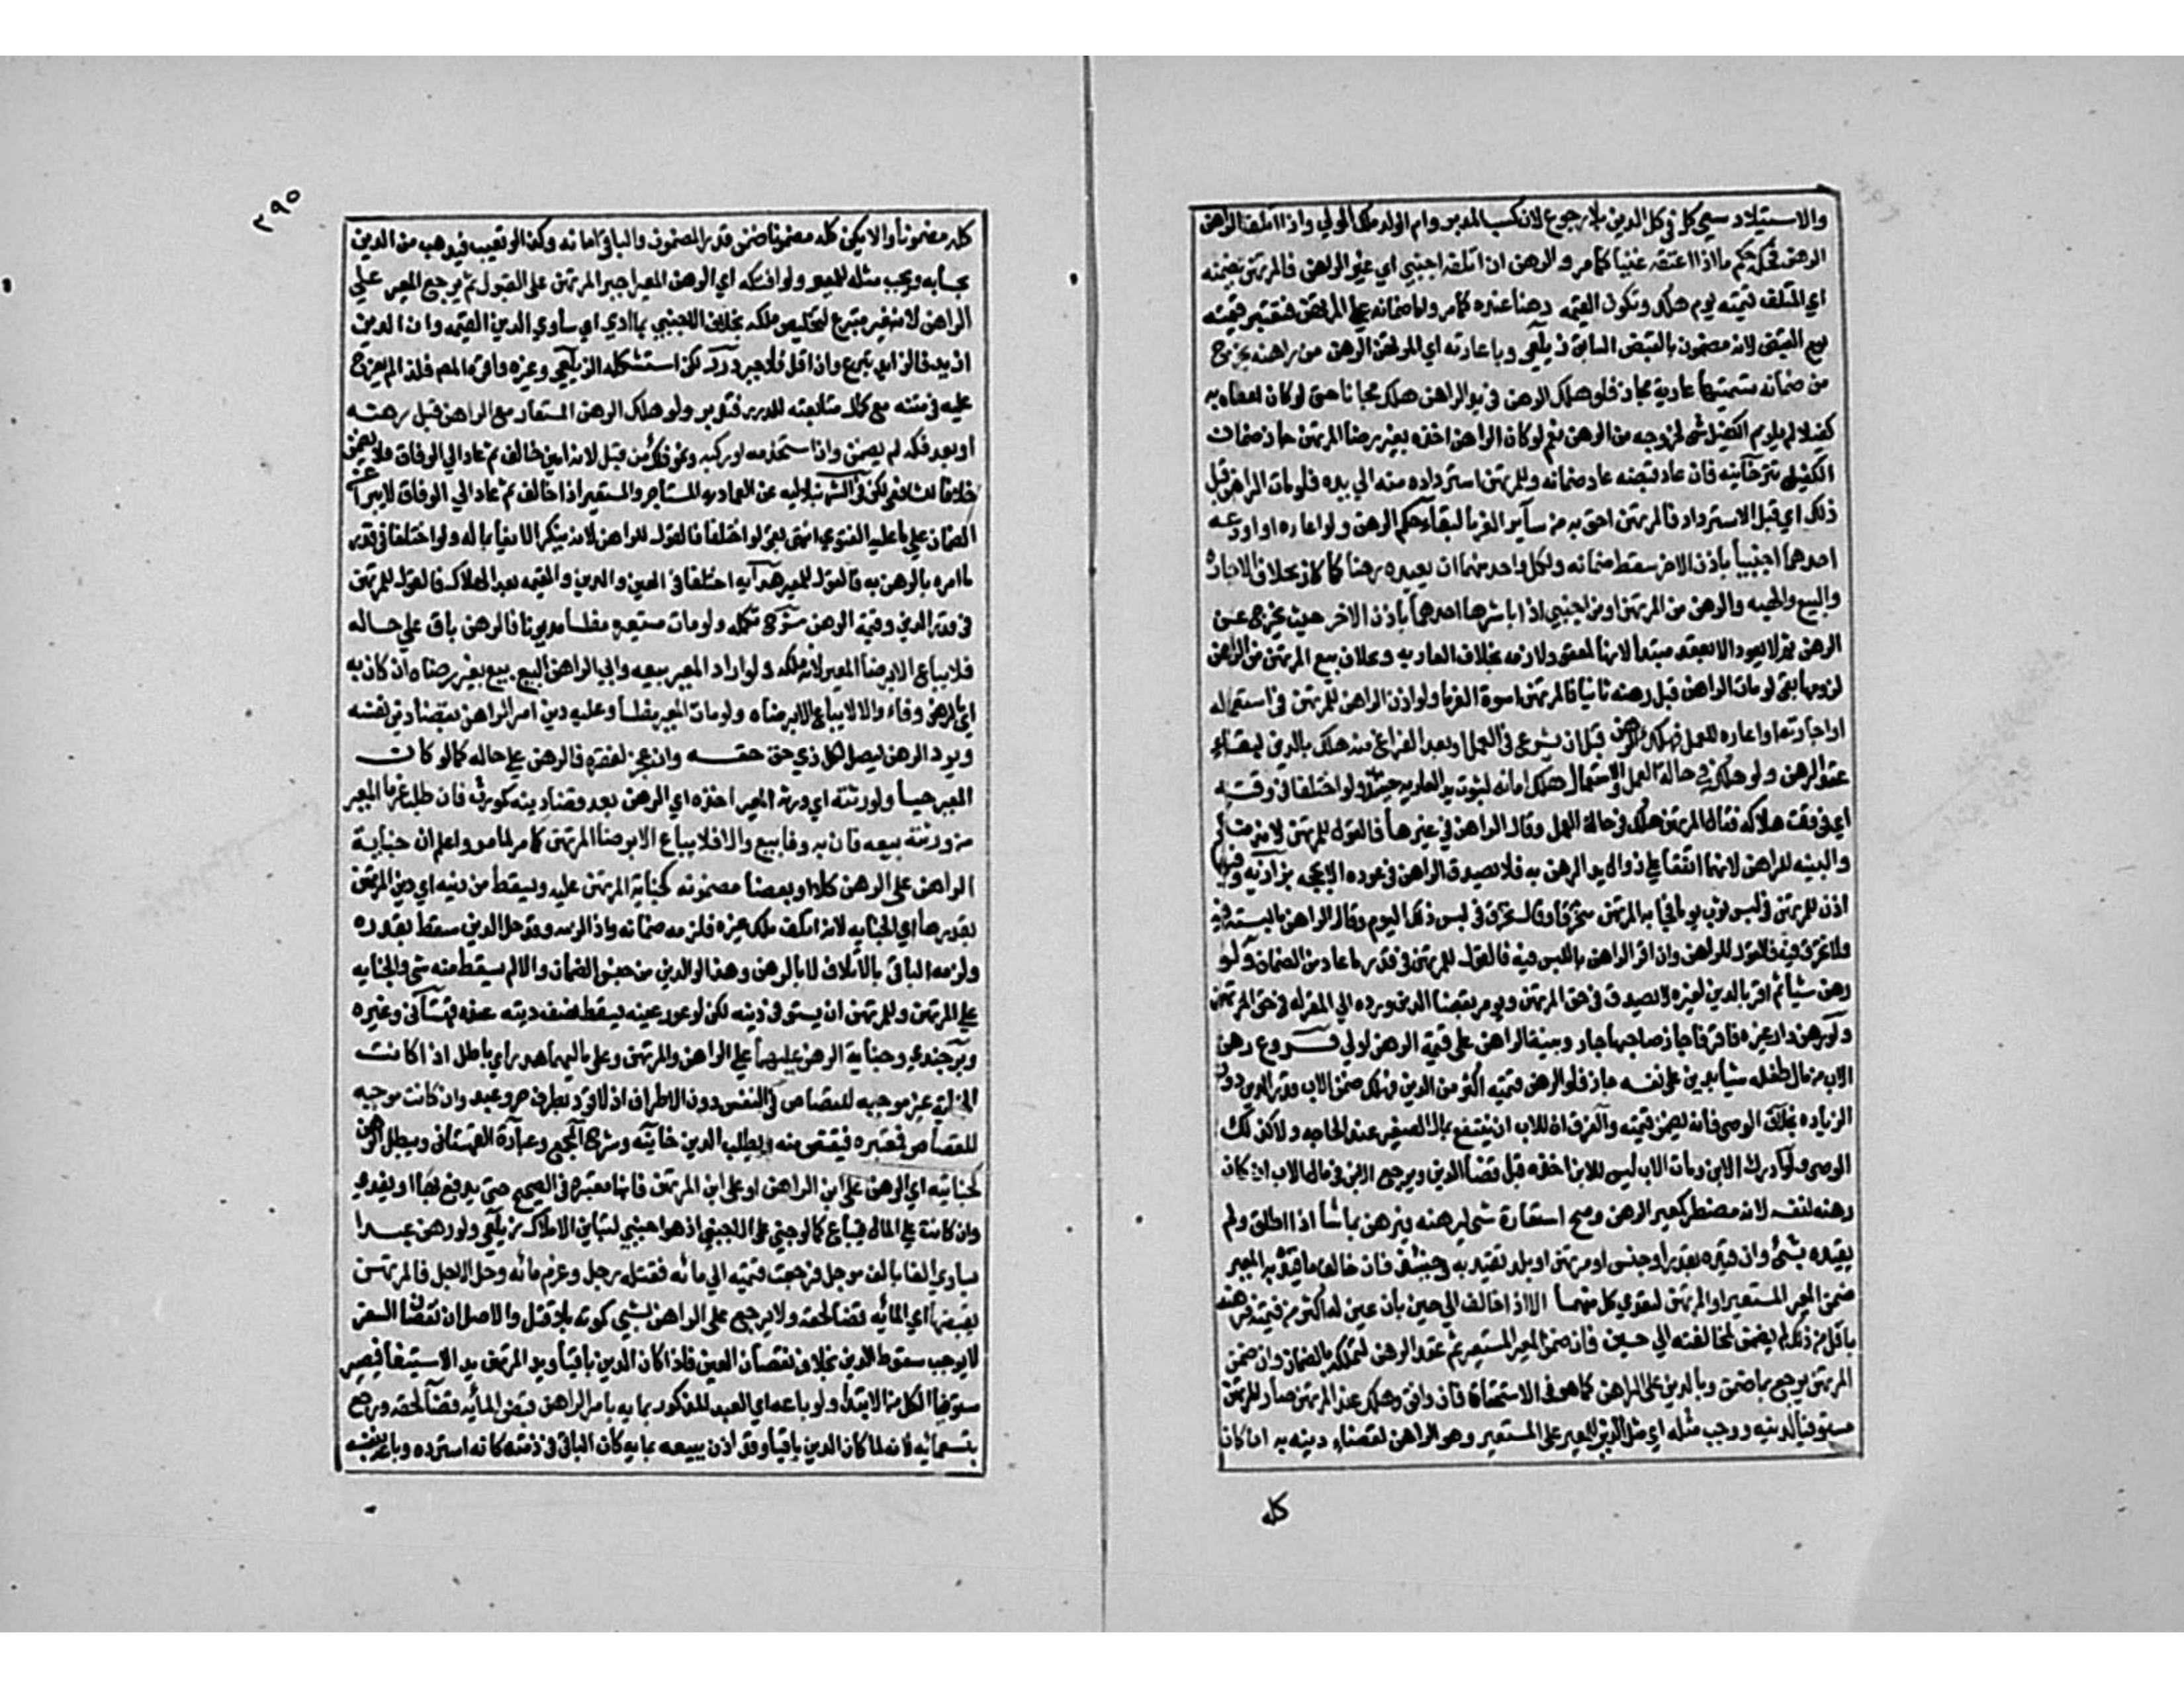 والاستيلاد سعي كل في كل الدين بلا رجوع لان كسب المدبر وام الولد ملك المولي واذا اتلف الراهن
الرهن فحكمه حكم ما اذا اعتقه غنيا كما مر والرهن ان اتلفه اجنبي اي غير الراهن فالمرتهن يضمنه
اي المتلف قيمته يوم هلك وتكون القيمه رهنا عنده كما مر واما ضمانه علي المرتهن فتعتبر قيمته
يوم القبض لانه مضمون بالقبض السابق زيلعي وباعارته اي المرتهن الرهن من راهنه يخرج
من ضمانه تسميتها عارية مجاز فلو هلك الرهن في يد الراهن هلك مجانا حتى لو كان اعطاه به
كفيلا لم يلزم الكفيل شي لخروجه من الرهن نعم لو كان الراهن اخذه بغير رضا المرتهن جاز ضمان
الكفيل خانيه فان عاد قبضه عاد ضمانه وللمرتهن استرداده منه الي يده فلو مات الراهن قبل
ذلك اي قبل الاسترداد فالمرتهن احق به من سآير الغرما لبقآء حكم الرهن ولو اعاره او اودعه
احدهما اجنبيا باذن الاخر سقط ضمانه ولكل واحد منهما ان يعيده رهنا كما كان بخلاف الاجارة
والبيع والهبه والرهن من المرتهن او من اجنبي اذا باشرها احدهما باذن الاخر حيث يخرج عن
الرهن ثم لا يعود الا بعقد مبتدا لانها لعقود لازمه بخلاف العاريه وبخلاف بيع المرتهن من الراهن
لزومها بقي لو مات الراهن قبل رهنه ثانيا فالمرتهن اسوة الغرما ولو اذن الراهن للمرتهن في استعماله
او اجارته او اعاره للعمل فهلك الرهن قبل ان يشرع في العمل او بعد الفراغ منه هلك بالدين لبقاء
عقد الرهن ولو هلك في حالة العمل والاستعمال هلك امانه لثبوت يد العاريه حينئذ ولو اختلفا في وقته
اي في وقت هلاكه فقال المرتهن هلك في حالة العمل وقال الراهن في غيرها فالقول للمرتهن لانه منكر
والبينه للراهن لانهما اتفقا علي زوال يد الرهن به فلا يصدق الراهن في عوده الا بحجه بزازيه وفيها
اذن للمرتهن في لبس ثوب يوما فجا به المرتهن متخرقا وقال تخرق في لبس ذلك اليوم وقال الراهن ما لبسته فيه
ولا تخرق فيه فالقول للراهن وان اقر الراهن باللبس فيه فالقول للمرتهن في قدر ما عاد من الضمان ولو
رهن شيا ثم اقر بالدين لغيره لا يصدق في حق المرتهن ويومر بقضا الدين ويرده الي المقر له في حق المرتهن
ولو رهن دار غيره فاقر فاجاز صاحبها جاز وبينة الراهن على قيمة الرهن اولي فروع رهن
الاب من مال طفله شيا بدين علي نفسه جاز فلو الرهن قيمته اكثر من الدين فهلك ضمن الاب قدر الدين دون
الزياده بخلاف الوصي فانه يضمن قيمته والفرق ان للاب ان ينتفع بمال الصغير عند الحاجه ولا كذلك
الوصي ولو ادرك الابن ومات الاب ليس للابن اخذه قبل قضا الدين ويرجع الابن في مال الاب ان كان
رهنه لنفسه لانه مضطر كمعير الرهن وصح استعارة شي ليرهنه فيرهن بما شا اذا اطلق ولم
يقيده بشئ وان قيده بقدر او جنس او مرتهن او بلد تقيد به وحينئذ فان خالف ما قيده به المعير
ضمن المعير المستعير او المرتهن لتعدي كل منهما الا اذا خالف الي خير بان عين له اكثر من قيمته فرهنه
باقل من ذلك لم يضمن لمخالفته الي خير فان ضمن المعير المستعير تم عقد الرهن لتملكه بالضمان وان ضمن
المرتهن يرجع بما ضمن وبالدين على الراهن كما هو في الاستحقاق فان وافق وهلك عند المرتهن صار المرتهن
مستوفيا لدينه ووجب مثله اي مثل الدين للمعير على المستعير وهو الراهن لقضاء دينه به ان كان
كله
٢٩٥
كله مضمونا والا يكن كله مضمونا ضمن قدر المضمون والباقي امانه وكذا لو تعيب فيذهب من الدين
بحسابه ويجب مثله للمعير ولو افتكه اي الرهن المعير اجبر المرتهن على القبول ثم يرجع المعير علي
الراهن لانه غير متبرع لتخليص ملكه بخلاف الاجنبي بما ادي اي ساوي الدين القيمه وان الدين
ازيد فالزايد تبرع وان اقل فلا جبر درر لكن استشكله الزيلعي وغيره واقره المص فلذا لم يعرج
عليه في متنه مع كمال متابعته للدرر فتدبر ولو هلك الرهن المستعار مع الراهن قبل رهنه
او بعد فكه لم يضمن وان استخدمه او ركبه ونحو ذلك من قبل لانه امين خالف ثم عاد الي الوفاق فلا يضمن
خلافا للشافعي لكن في الشرنبلاليه عن العماديه المستاجر والمستعير اذا خالف ثم عاد الي الوفاق لا يبرا عن
الضمان علي ما عليه الفتوي انتهى ولو اختلفا فالقول للراهن لانه ينكر الايفا بماله ولو اختلفا في قدر
ما امره بالرهن به فالقول للمعير هدايه اختلفا في العين والدين والقيمه بعد الهلاك فالقول للمرتهن
في قدر الدين وقيمة الرهن شرح تكمله ولو مات مستعيره مفلسا مديونا فالرهن باق علي حاله
فلا يباع الا برضا المعير لانه ملكه ولو اراد المعير بيعه وابي الراهن البيع بيع بغير رضاه ان كان به
اي بالرهن وفاء والا لا يباع الا برضاه ولو مات المعير مفلسا وعليه دين امر الراهن بقضا دين نفسه
ويرد الرهن ليصل لكل ذي حق حقه وان عجز لفقره فالرهن علي حاله كما لو كان
المعير حيا ولورثته اي ورثة المعير اخذه اي الرهن بعد قضا دينه كمورث فان طلب غرما المعير
من ورثته بيعه فان به وفا بيع والا فلا يباع الا برضا المرتهن كما مر لما مر واعلم ان جناية
الراهن على الرهن كلا او بعضا مضمونه كجناية المرتهن عليه ويسقط من دينه اي دين المرتهن
بقدرها اي الجنايه لانه اتلف ملك غيره فلزمه ضمانه واذا لزمه وقد حل الدين سقط بقدره
ولزمه الباقي بالاتلاف لا بالرهن وهذا لو الدين من جنس الضمان والا لم يسقط منه شي والجنايه
علي المرتهن وللمرتهن ان يستوفي دينه لكن لو عور عينه يسقط نصف ديته عنه قهستاني وغيره
وبرجندي وجناية الرهن عليهما اي علي الراهن والمرتهن وعلي مالهما هدر اي باطل اذا كانت
الجناية غير موجبه للقصاص في النفس دون الاطراف اذ لا قود بطرف حر وعبد وان كانت موجبه
للقصاص فمعتبره فيقتص منه ويبطل الدين خانيه وشرح المجمع وعبارة القهستاني ويبطل الرهن
كجنايته اي الرهن على ابن الراهن او على ابن المرتهن فانها معتبره في الصحيح حتى يدفع بها او يفدي
وان كانت علي المال فيباع كما لو جني علي الاجنبي اذ هو اجنبي لتباين الاملاك زيلعي ولو رهن عبدا
يساوي الفا بالف موجل فرجعت قيمته الي مائه فقتله رجل وغرم مائه وحل الاجل فالمرتهن
يقبضها اي المائه قضا لحقه ولا يرجع على الراهن بشي كموته بلا قتل والاصل ان نقصان السعر
لا يوجب سقوط الدين بخلاف نقصان العين فاذا كان الدين باقيا ويد المرتهن يد الاستيفا فيصير
مستوفيا الكل من الابتدا ولو باعه اي العبد المذكور بمايه بامر الراهن قبض المائه قضآ لحقه ورجع
بتسعمائه لانه لما كان الدين باقيا وقد اذن ببيعه بمايه كان الباقي في ذمته كانه استرده وباعه بنفسه